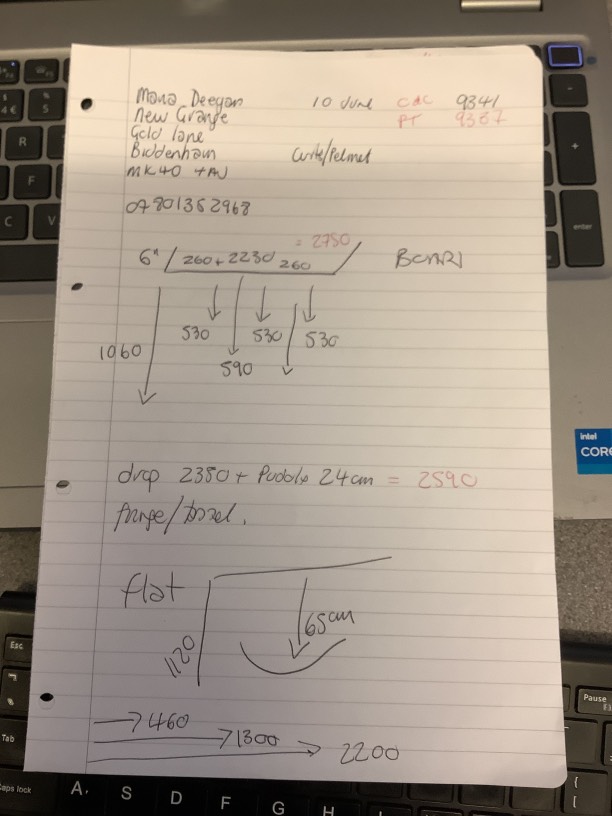 Mona Deegan 10 June CdC 9341
New Grange PT 9387
Gold lane
Biddenham Curts/Pelmet
MK40 4AU
07801352968
= 2750
6" / 260 + 2230 / 260
530 530 530
1060
590
drop 2350 + Puddle 24cm = 2590
fringe/tassel.
flat
65cm
1120
460
1300
2200
intel
CORE
Esc
Tab
Caps lock
A S D F G H
R
F
C V
enter
Pause